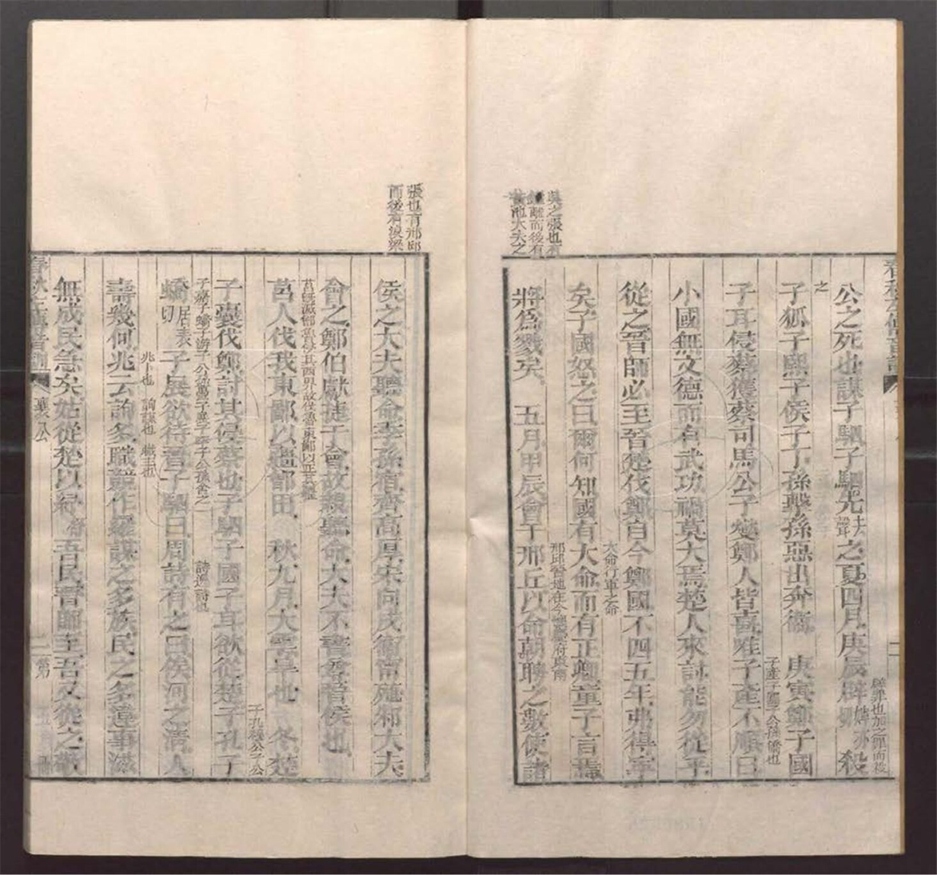 吳之張也有
鍾離而後有
公之死也謀子駟子駟先去聲之夏四月庚辰辟婢亦殺
之
辟罪也加之罪而殺
子狐子熙子侯子丁孫擊孫惡出奔衛 庚寅鄭子國
子耳侵蔡獲蔡司馬公子燮鄭人皆喜唯子產不順曰
子產子國子公孫僑也
小國無文德而有武功禍莫大焉楚人來討能勿從乎
從之晉師必至晉楚伐鄭自今鄭國不四五年弗得寧
大命行軍之命
矣子國怒之曰爾何知國有大命而有正卿童子言焉
將為戮矣 五月甲辰會于邢丘以命朝聘之數使諸
張也有邢邱
而後有溴梁
侯之大夫聽命季孫宿齊高厚宋向戌衛甯殖邾大夫
會之鄭伯獻捷于會故親聽命大夫不書尊晉侯也
莒人伐我東鄙以疆鄫田 秋九月大雩旱也 冬楚
子囊伐鄭討其侵蔡也子駟子國子耳欲從楚子孔子
蟜居表切子展欲待晉子駟曰周詩有之曰俟河之清人
詩逸詩也
壽幾何兆云詢多職競作羅謀之多族民之多違事滋
兆卜也
無成民急矣姑從楚以紓吾民晉師至吾又從之敬